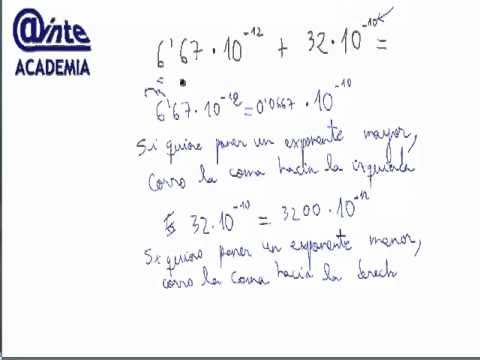 @inte
ACADEMIA
6'67 · 10⁻¹² + 32 · 10⁻¹⁰ =
6'67 · 10⁻¹² = 0'0667 · 10⁻¹⁰
Si quiero poner un exponente mayor,
corro la coma hacia la izquierda
32 · 10⁻¹⁰ = 3200 · 10⁻¹²
Si quiero poner un exponente menor,
corro la coma hacia la derech